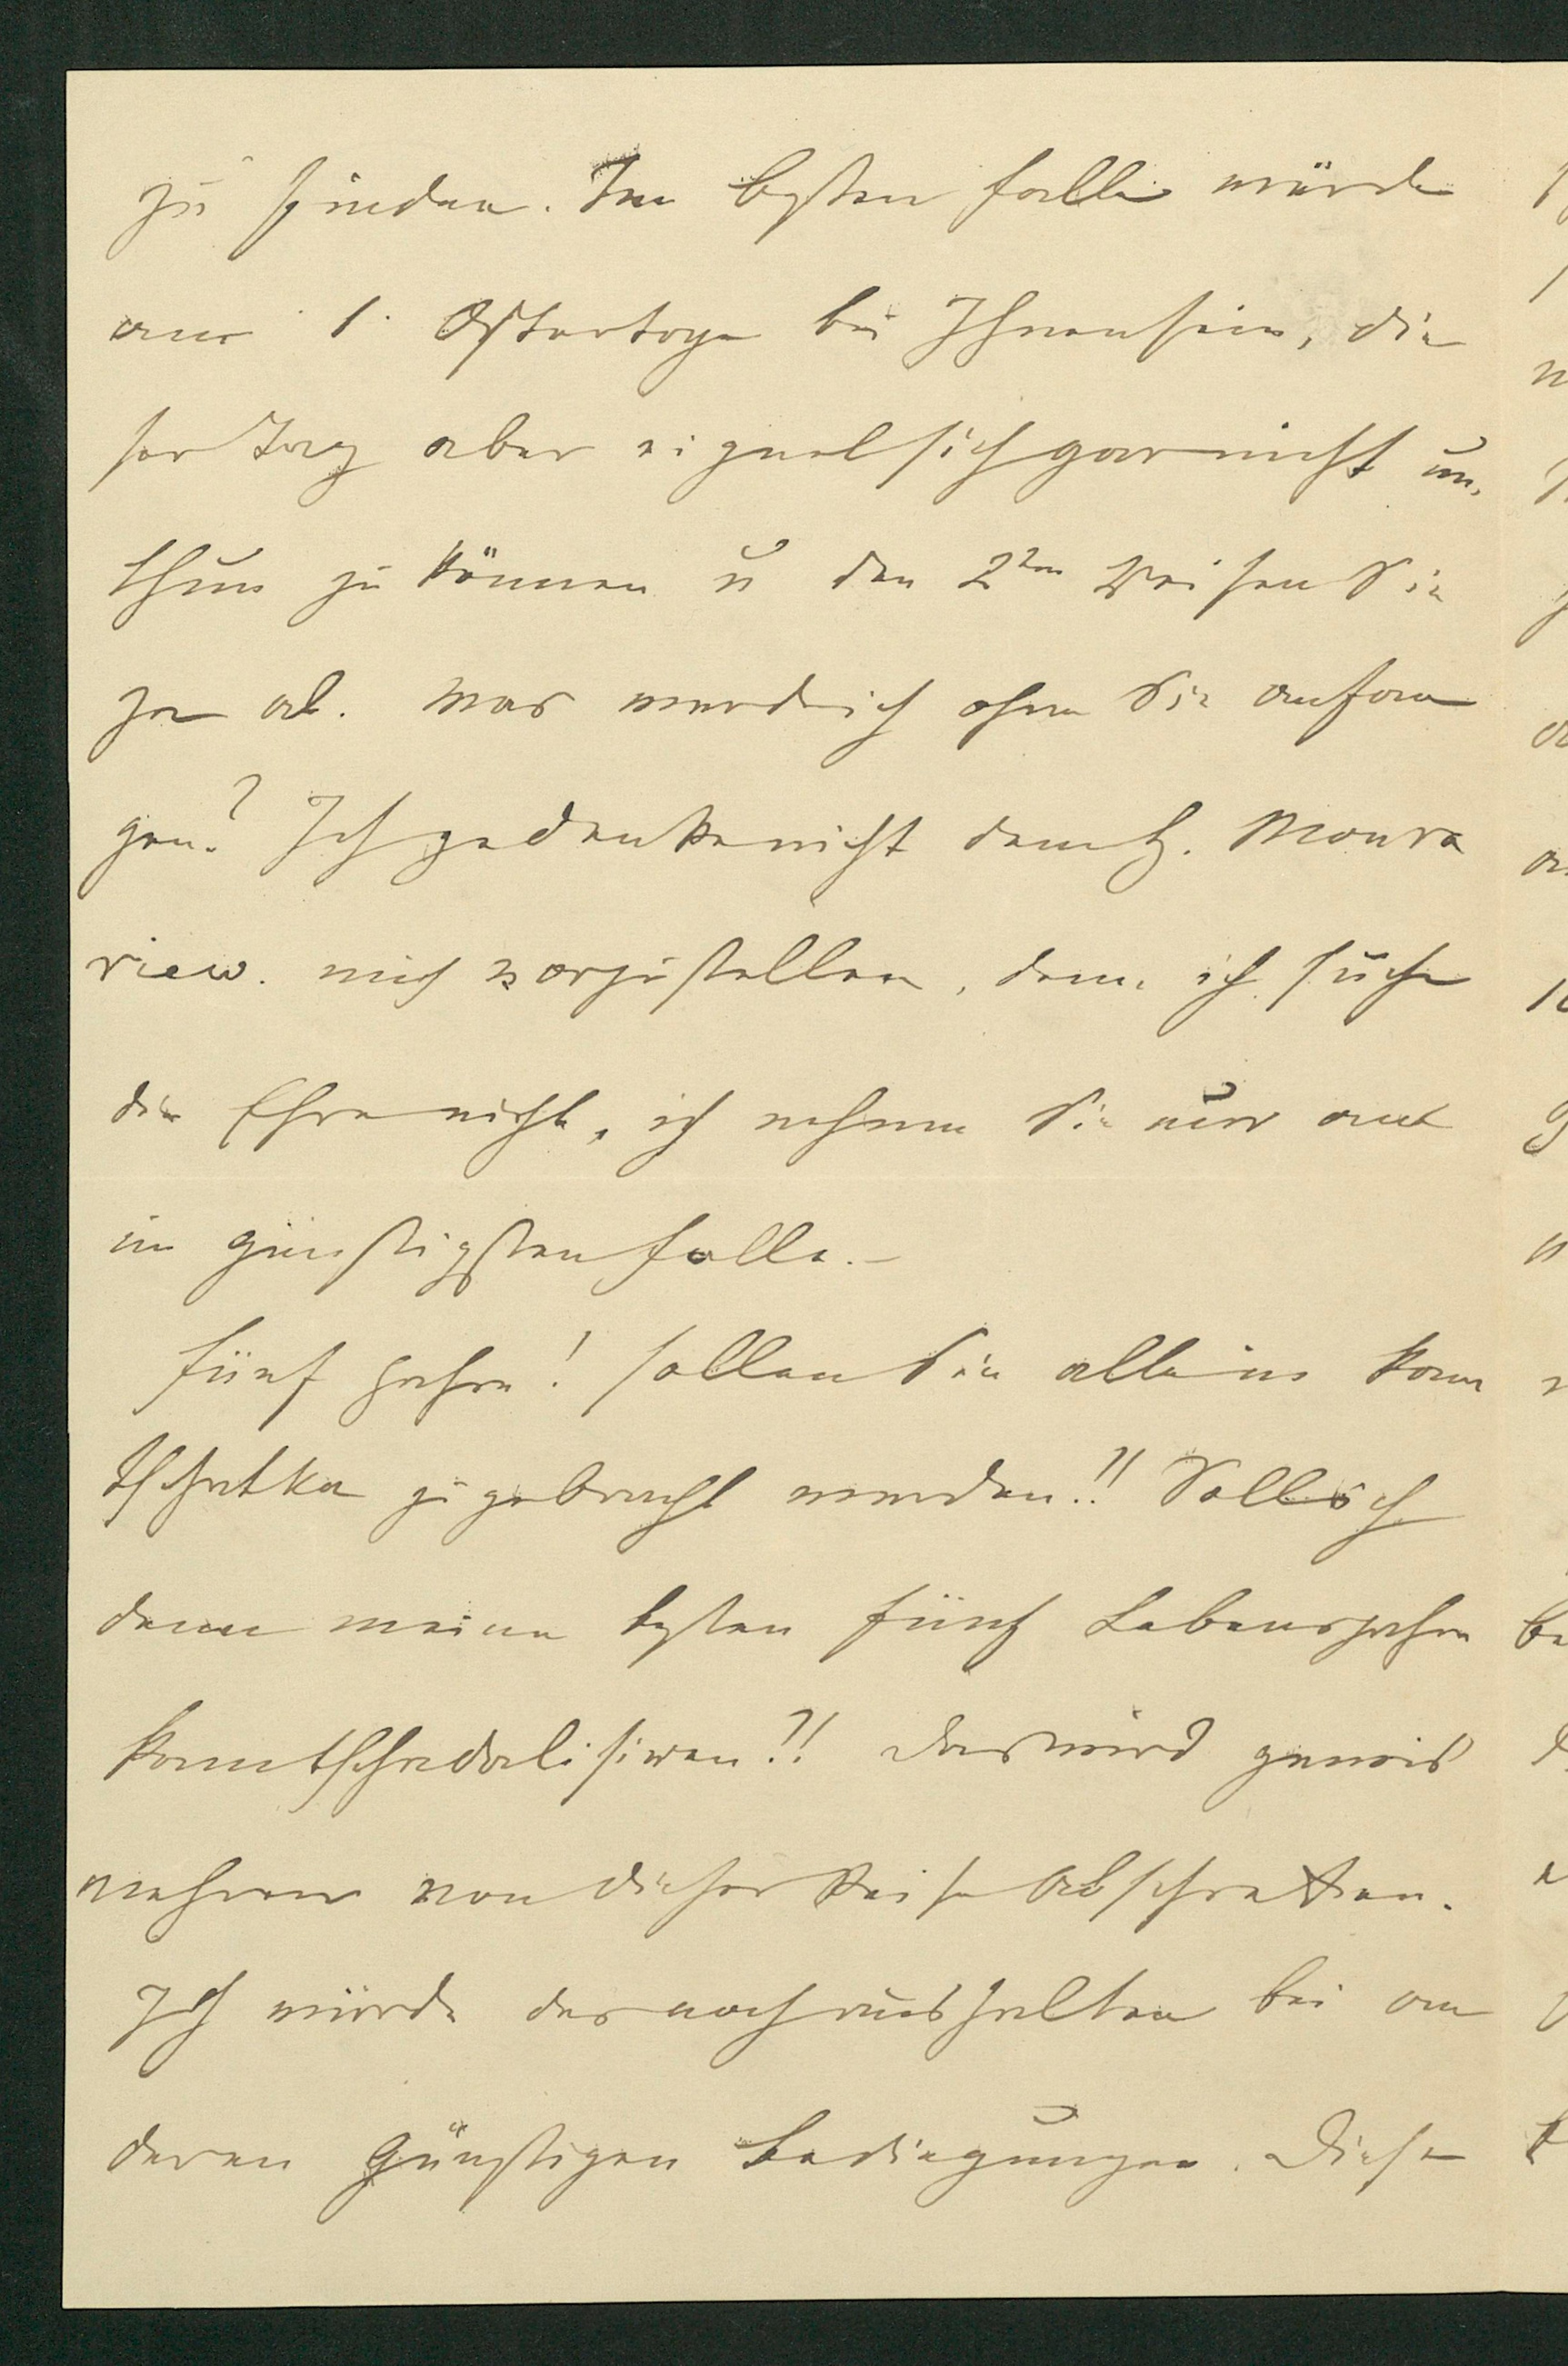 zu finden. Im besten Falle würde
am 1. Ostertage bei Ihnen sein, die
ser Tag aber eignet sich gar nicht um
thun zu können u den 2ten Reisen Sie
ja ab. Was werde ich ohne Sie anfan
gen? Ich gedenke nicht dem H. Moura
view. mich vorzustellen, denn ich suche
die Ehre nicht, ich nehme Sie nur an
im günstigsten Falle.–
Fünf Jahre! sollen Sie alle in Kam
tschatka zugebracht werden!! Soll ich
denn meine besten fünf Lebensjahre
Kamtschadalisiren?!! Das wird gewis
mehrere von dieser Reise abschrekken.
Ich würde das noch aushalten bei an
deren günstigen Bedingungen. Diese